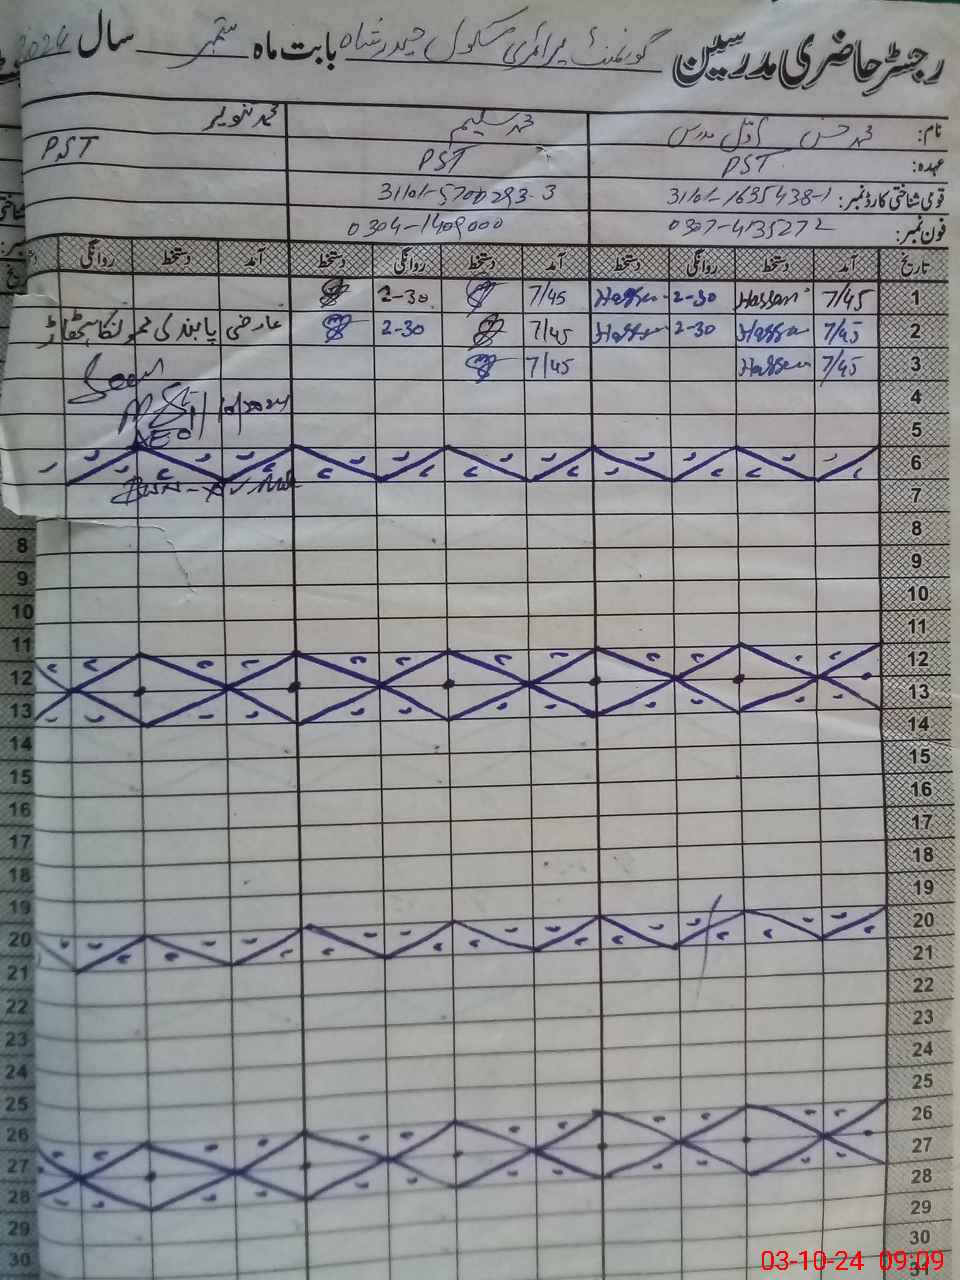 رجسٹر حاضری مدرسین گورنمنٹ پرائمری سکول حیدر شاہ بابت ماہ ستمبر سال 2024
نام: محمد حسن مدرس محمد سلیم محمد تنویر
عہدہ: PST PST PST
قومی شناختی کارڈ نمبر: 31101-1635438-1 31101-5700293-3
فون نمبر: 0307-4135272 0304-1409000
تاریخ آمد دستخط روانگی دستخط آمد دستخط روانگی دستخط آمد دستخط روانگی
1 7/45 Hassan 2-30 Hassan 7/45 2-30
2 7/45 Hassan 2-30 Hassan 7/45 2-30 عارضی پابندی
3 7/45 Hassan 7/45
4
5
6
7
8 8
9 9
10 10
11 11
12 12
13 13
14 14
15 15
16 16
17 17
18 18
19 19
20 20
21 21
22 22
23 23
24 24
25 25
26 26
27 27
28 28
29 29
30 30
31
03-10-24 09:09